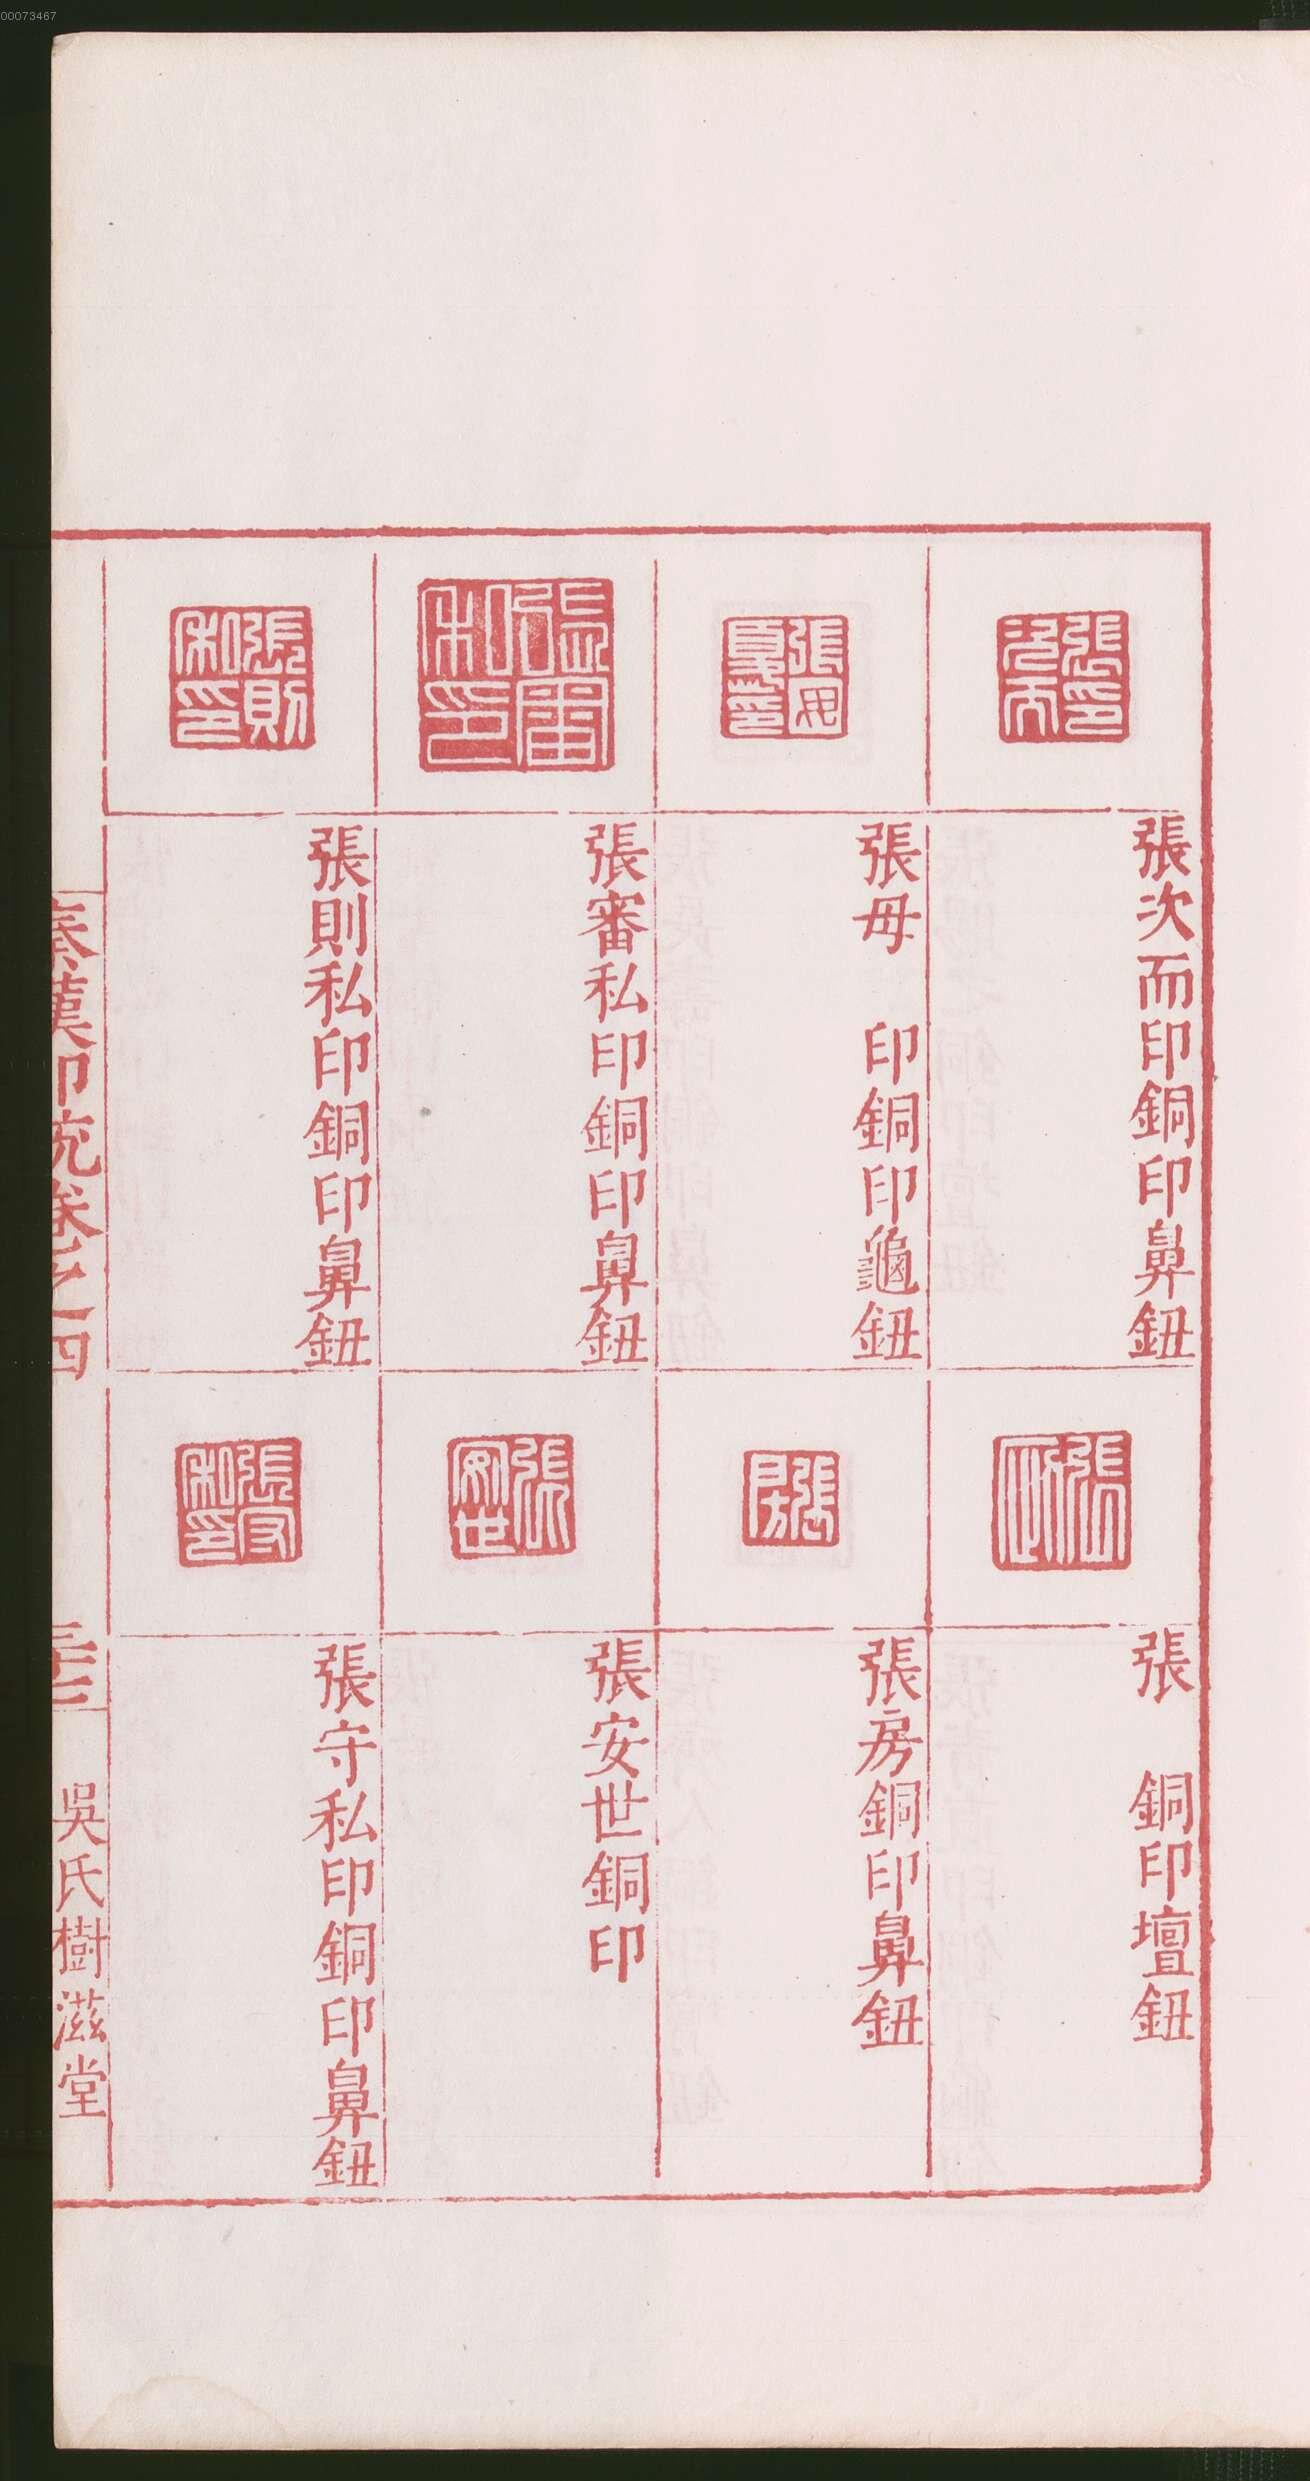 張次而印銅印鼻鈕
張母　印銅印龜鈕
張審私印銅印鼻鈕
張則私印銅印鼻鈕
張　銅印壇鈕
張房銅印鼻鈕
張安世銅印
張守私印銅印鼻鈕
秦漢印統卷之四
三十三
吳氏樹滋堂
00073467